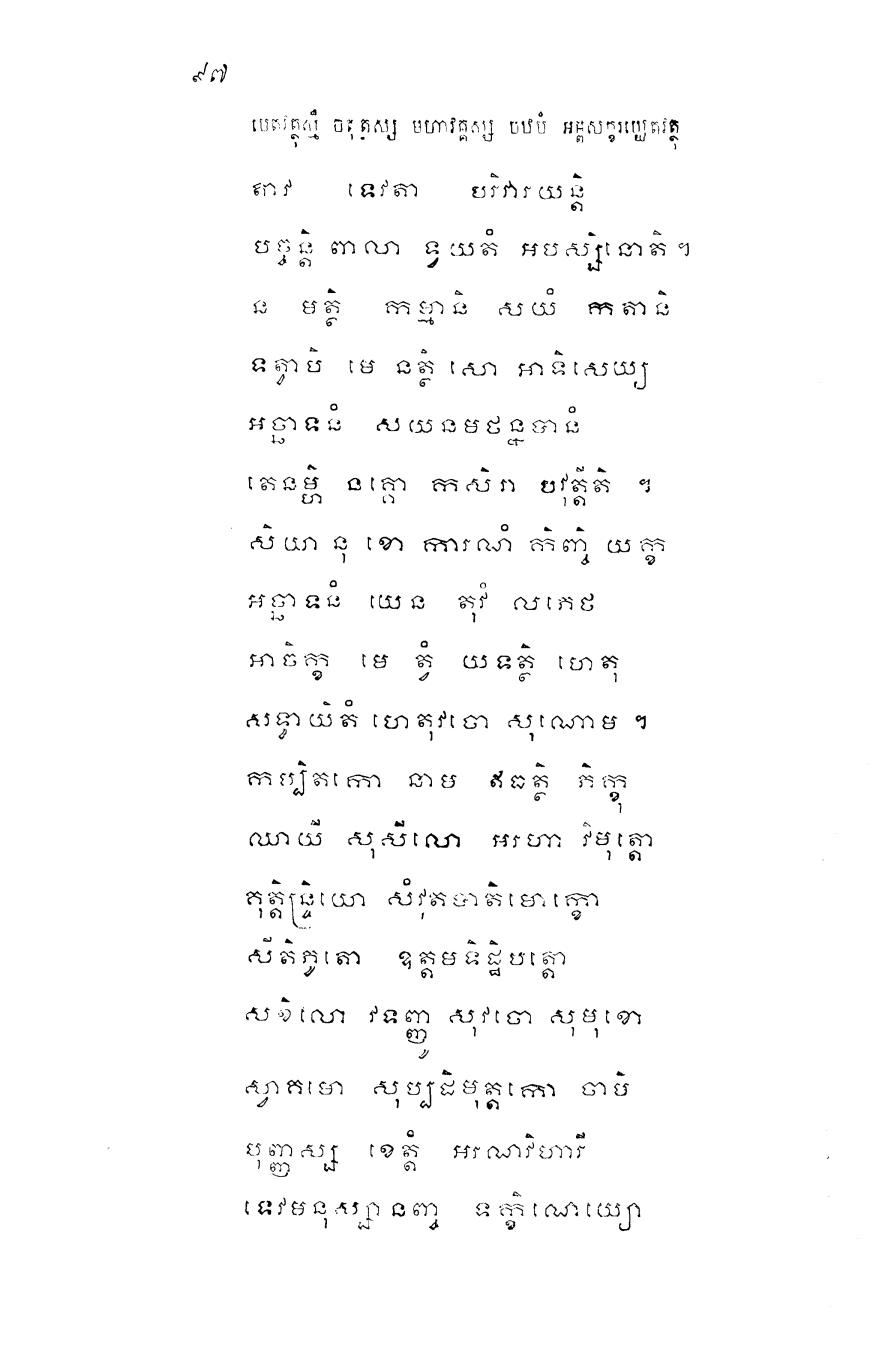 ៩៧
បេតវត្ថុស្មឹ ចតុត្ថស្ស មហាវគ្គស្ស បឋមំ អម្ពសក្ខរប្បេតវត្ថុ
តាវ ទេវតា បរិវារយន្តិ
បច្ចន្តិ ពាលា ទ្វយតំ អបស្សិនោតិ ។
ន មត្ថិ កម្មានិ សយំ កតានិ
ទត្វាបិ មេ នត្ថិ សោ អាទិសេយ្យ
អច្ឆាទនំ សយនមថន្នបានំ
តេនម្ហិ នគ្គោ កសិរា បវុត្តីតិ ។
សិយា នុ ខោ ការណំ កិញ្ចិ យក្ខ
អច្ឆាទនំ យេន តុវំ លភេថ
អាចិក្ខ មេ ត្វំ យទត្ថិ ហេតុ
សទ្ធាយិតំ ហេតុវចោ សុណោម ។
កប្បិតកោ នាម ឥធត្ថិ ភិក្ខុ
ឈាយី សុសីលោ អរហា វិមុត្តោ
គុត្តិន្ទ្រិយោ សំវុតបាតិមោក្ខោ
សីតិភូតោ ឧត្តមទិដ្ឋិបត្តោ
សខិលោ វទញ្ញូ សុវចោ សុមុខោ
ស្វាគមោ សុប្បដិមុត្តកោ ចាបិ
បុញ្ញស្ស ខេត្តំ អរណវិហារី
ទេវមនុស្សានញ្ច ទក្ខិណេយ្យោ